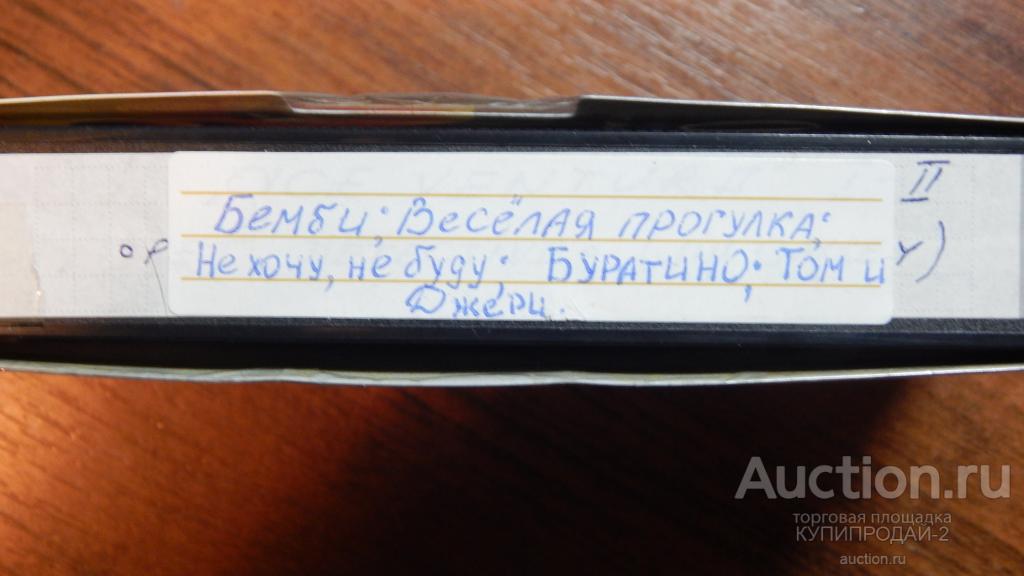 II
Бемби; Весёлая прогулка;
Не хочу, не буду; Буратино; Том и
Джери.
Auction.ru
торговая площадка
КУПИПРОДАЙ-2
auction.ru